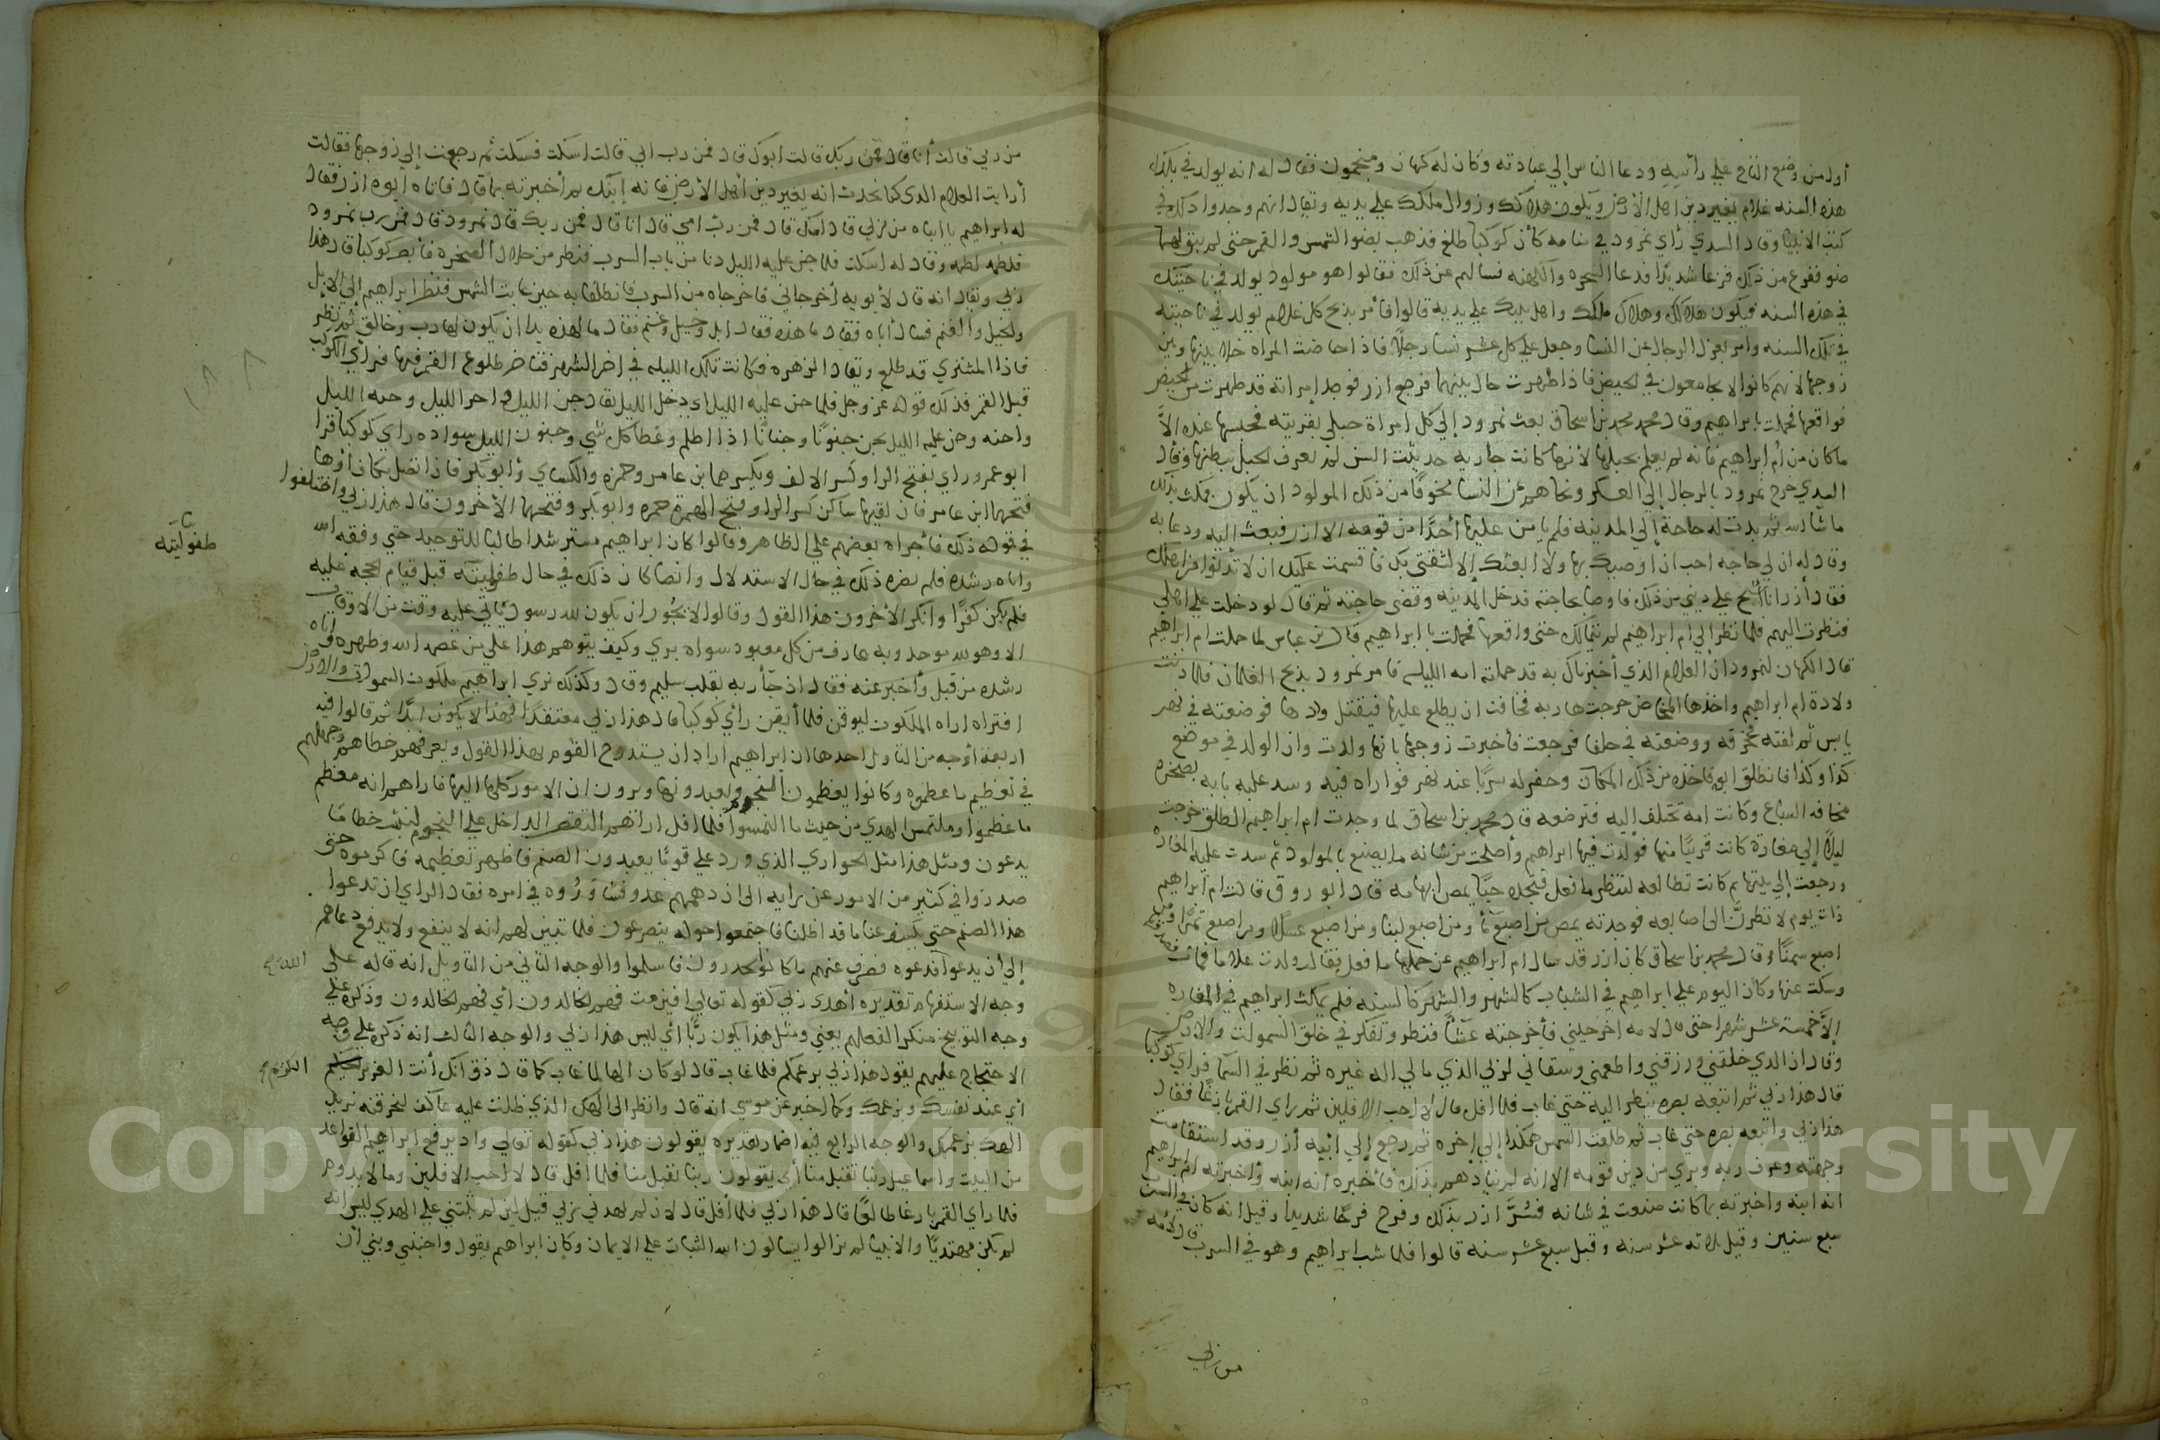 أول من وضع التاج على رأسه ودعا الناس إلى عبادته وكان له كهان ومنجمون فقالوا له انه يولد في بلدك
هذه السنه غلام يغير دين اهل الأرض ويكون هلاكك وزوال ملكك على يديه ويقال انهم وجدوا ذلك في
كتب الانبيا وقال السدي رأي نمرود في منامه كأن كوكبا طلع فذهب بضوالشمس والقمر حتى لم يبق لهما
ضو ففزع من ذلك فزعا شديدًا فدعا السحره والكهنه فسالهم عن ذلك فقالوا هو مولود يولد في ناحيتك
في هذه السنه فيكون هلاكك وهلاك ملكك واهل بيتك على يديه قالوا فأمر بذبح كل غلام يولد في ناحيته
في تلك السنه وامر بعزل الرجال عن النسا وجعل على كل عشر نسا رجلًا فاذا حاضت المراه خلا بينها وبين
زوجها لانهم كانوا لا يجامعون في الحيض فاذا طهرت حال بينهما فرجع ازر فوجد امراته قد طهرت من الحيض
فواقعها فحملت بابراهيم وقال محمد بن اسحاق بعث نمرود إلى كل امراة حبلى بقريته فحبسها عنده الا
ماكان من أم ابراهيم فانه لم يعلم بحبلها لأنها كانت جاريه حديثت السن لم يعرف الحبل ببطنها وقال
السدي خرج نمرود بالرجال إلى العسكر ونحاهم عن النسا تخوفًا من ذلك المولود ان يكون فمكث بذلك
ما شا الله ثم بدت له حاجة إلى المدينه فلم يامن عليها أحدًا من قومه الا ازر فبعث اليه ودعا به
وقال له ان لي حاجه احب ان اوصيك بها ولا ابعثك إلا لثقتي بك فاقسمت عليك ان لا تدنوا من اهلك
فقال أزر انا أشح على ديني من ذلك فاوصاه بحاجته فدخل المدينه وقضى حاجته ثم قال لو دخلت على اهلي
فنظرت اليهم فلما نظر إلى ام ابراهيم لم يتمالك حتى واقعها فحملت بابراهيم قال بن عباس لما حملت ام ابراهيم
قال الكهان لنمرود ان الغلام الذي أخبرناك به قد حملته امه الليله فامر نمرود بذبح الغلمان فلما دنت
ولادة ام ابراهيم واخذها المخاض خرجت هاربه مخافت ان يطلع عليها فيقتل ولدها فوضعته في نهر
يابس ثم لفته بخرقه ووضعته في حلفا فرجعت فأخبرت زوجها بانها ولدت وان الولد في موضع
كذا وكذا فانطلق ابوه فاخذه من ذلك المكان وحفر له سربًا عند نهر فواراه فيه وسد عليه بابه بصخره
مخافه السباع وكانت امه تختلف إليه فترضعه قال محمد بن اسحاق لما وجدت ام ابراهيم الطلق خرجت
ليلًا إلى مغارة كانت قريبًا منها فولدت فيها ابراهيم وأصلحت من شانه ما يصنع بالمولود ثم سدت عليه المغاره
ورجعت إلى بيتها ثم كانت تطالعه لتنظر ما فعل فتجده حيًا يمص ابهامه قال ابو روق قالت ام ابراهيم
ذات يوم لانظرنّ الى اصابعه فوجدته يمص من اصبع مأ ومن اصبع لبنا ومن اصبع عسلًا ومن اصبع تمرًا ومن
اصبع سمنًا وقال محمد بن اسحاق كان ازر قد سال ام ابراهيم عن حملها ما فعل فقالت ولدت غلاما فمات فصدقها
وسكت عنها وكان اليوم على ابراهيم في الشباب كالشهر والشهر كالسنه فلم يمكث ابراهيم في المغاره
الا خمسة عشر شهرا حتى قال لامه اخرجيني فأخرجته عشًا فنظر وتفكر في خلق السموات والارض
وقال ان الذي خلقني ورزقني واطعمني وسقاني لربي الذي مالي اله غيره ثم نظر في السما فراي كوكبا
قال هذا ربي ثم اتبعه بصره ينظر اليه حتى غاب فلما افل قال لا احب الافلين ثم راي القمر بازغًا فقال
هذا ربي واتبعه بصره حتى غاب ثم طلعت الشمس هكذا إلى إخره ثم رجع إلى ابيه أزر وقد استقامت
وجهته وعرف ربه وبري من دين قومه الا انه لم يناديهم بذلك فأخبره انه ابنه وأخبرته ام ابراهيم
انه ابنه واخبرته بما كانت صنعت في شانه فسُرَّ ازر بذلك وفرح فرحًا شديدا وقيل انه كان في السرب
سبع سنين وقيل ثلاثه عشر سنه وقيل سبع عشر سنه قالوا فلما شب ابراهيم وهو في السرب قال لأمه
من ربي
من ربي قالت أنا قال فمن ربك قالت ابوك قال فمن رب ابي قالت اسكت فسكت ثم رجعت إلى زوجها فقالت
أرايت الغلام الذي كنا نحدث انه يغير دين أهل الأرض فانه إبنك ثم أخبرته بما قال فاتاه ابوه ازر فقال
له ابراهيم يا ابتاه من ربي قال امك قال فمن رب امي قال انا قال فمن ربك قال نمرود قال فمن رب نمرود
فلطمه لطمه وقال له اسكت فلما جن عليه الليل دنا من باب السرب فنظر من خلال الصخره فأبصر كوكبا قال هذا
ربي ويقال انه قال لأبويه أخرجاني فاخرجاه من السرب فانطلقا به حين غابت الشمس فنظر ابراهيم إلى الابل
والخيل والغنم فسال أباه فقال ما هذه فقال ابل وخيل وغنم فقال ما لهذه بد ان يكون لها رب وخالق ثم نظر
فاذا المشتري قد طلع ويقال الزهره فكانت تلك الليله في اخر الشهر فتاخر طلوع القمر فيها فراي الكوكب
قبل القمر فذلك قوله عز وجل فلما جن عليه الليل اي دخل الليل يقال جن الليل واجن الليل وجنه الليل
واجنه وجن عليه الليل يجن جنونًا وجنانًا اذا اظلم وغطا كل شي وجنون الليل سواده راي كوكبا قرا
ابو عمرو راي بفتح الرا وكسر الالف ويكسرها بن عامر وحمزه والكساي وأبو بكر فاذا اتصل بكاف أو ها
فتحها ابن عامر فان لقيها ساكن كسر الرا وفتح الهمزة حمزه وابو بكر وفتحها الأخرون قال هذا ربي واختلفوا
في قوله ذلك فأجراه بعضهم على الظاهر وقالوا كان ابراهيم مسترشدا طالبا للتوحيد حتى وفقه الله
واتاه رشده فلم يضره ذلك في حال الاستدلال وايضا كان ذلك في حال طفوليته قبل قيام الحجه عليه
طفوليته
فلم يكن كفرًا وانكر الأخرون هذا القول وقالوا لا يجوز ان يكون لله رسول ياتي عليه وقت من الاوقات
الا وهو لله موحد وبه عارف من كل معبود سواه بري وكيف يتوهم هذا على من عصمه الله وطهره واتاه
رشده من قبل وأخبر عنه فقال اذ جأ ربه بقلب سليم وقال وكذلك نري ابراهيم ملكوت السموات والارض
افتراه اراه الملكوت ليوقن فلما أيقن رأي كوكبا قال هذا ربي معتقدًا فهذا لا يكون ابدًا ثم قالوا فيه
اربعة أوجه من التاويل احدها ان ابراهيم اراد ان يستدرج القوم بهذا القول ويعرفهم خطاهم وجهلهم
في تعظيم ما عظموه وكانوا يعظمون النجوم ويعبدونها ويرون ان الامور كلها اليها فاراهم انه معظم
ما عظموا وملتمس الهدي من حيث ما التمسوا فلما افل اراهم النقص الداخل على النجوم ليثبت خطا ما
يدعون ومثل هذا مثل الحواري الذي ورد على قومًا يعبدون الصنم فاظهر تعظيمه فاكرموه حتى
صدروا في كثير من الامور عن رايه الى ان دهمهم عدو فشاوَرُوه في امره فقال الراي ان تدعوا
هذا الصنم حتى يكشف عنا ما قد اظلنا فاجتمعوا حوله يتضرعون فلما تبين لهم انه لا ينفع ولا يدفع دعاهم
إلى أن يدعوا الله فدعوه فصرف عنهم ما كانوا يحذرون فاسلموا والوجه الثاني من التاويل انه قاله على
الله صح
وجه الاستفهام تقديره أهذا ربي كقوله تعالى افئن مت فهم الخالدون أي أفهم الخالدون وذكره على
وجه التوبيخ منكرا لفعلهم يعني ومثل هذا يكون ربًّا أي ليس هذا ربي والوجه الثالث انه ذكره على وجه
الاحتجاج عليهم يقول هذا ربي بزعمكم فلما غاب قال لو كان الها لما غاب كما قال ذق انك أنت العزيز
الكريم صح
أي عند نفسك وبزعمك وكما اخبر عن موسى انه قال وانظر الى الهك الذي ظلت عليه عاكفا لنحرقنه يريد
الهك بزعمك والوجه الرابع فيه اضمار تقديره يقولون هذا ربي كقوله تعالى واذ يرفع ابراهيم القواعد
من البيت واسماعيل ربنا تقبل منا أي يقولون ربنا تقبل منا فلما افل قال لا احب الافلين وما لا يدوم
فلما راي القمر بازغا طالعًا قال هذا ربي فلما أفل قال لئن لم يهدني ربي قيل لئن لم يثبتني على الهدي ليس انه
لم يكن مهتديًا والانبيا لم يزالوا يسالون الله الثبات على الايمان وكان ابراهيم يقول واجنبني وبني أن
Copyright © King Saud University